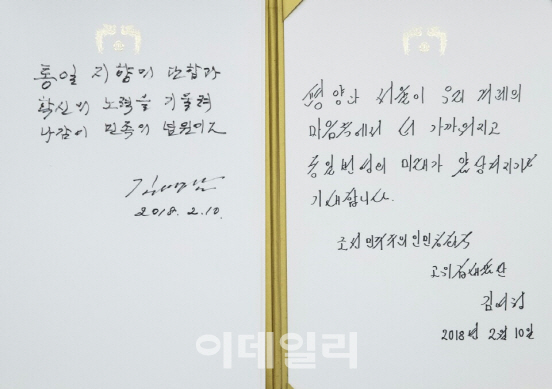 통일 지향의 단합과
확신의 노력을 기울려
나감이 민족의 념원이오
김영남
2018. 2. 10.
평양과 서울이 우리 겨레의
마음속에서 더 가까워지고
통일번영의 미래가 앞당겨지기를
기대합니다.
조선민주주의인민공화국
고위급대표단
김여정
2018년 2월 10일
이데일리